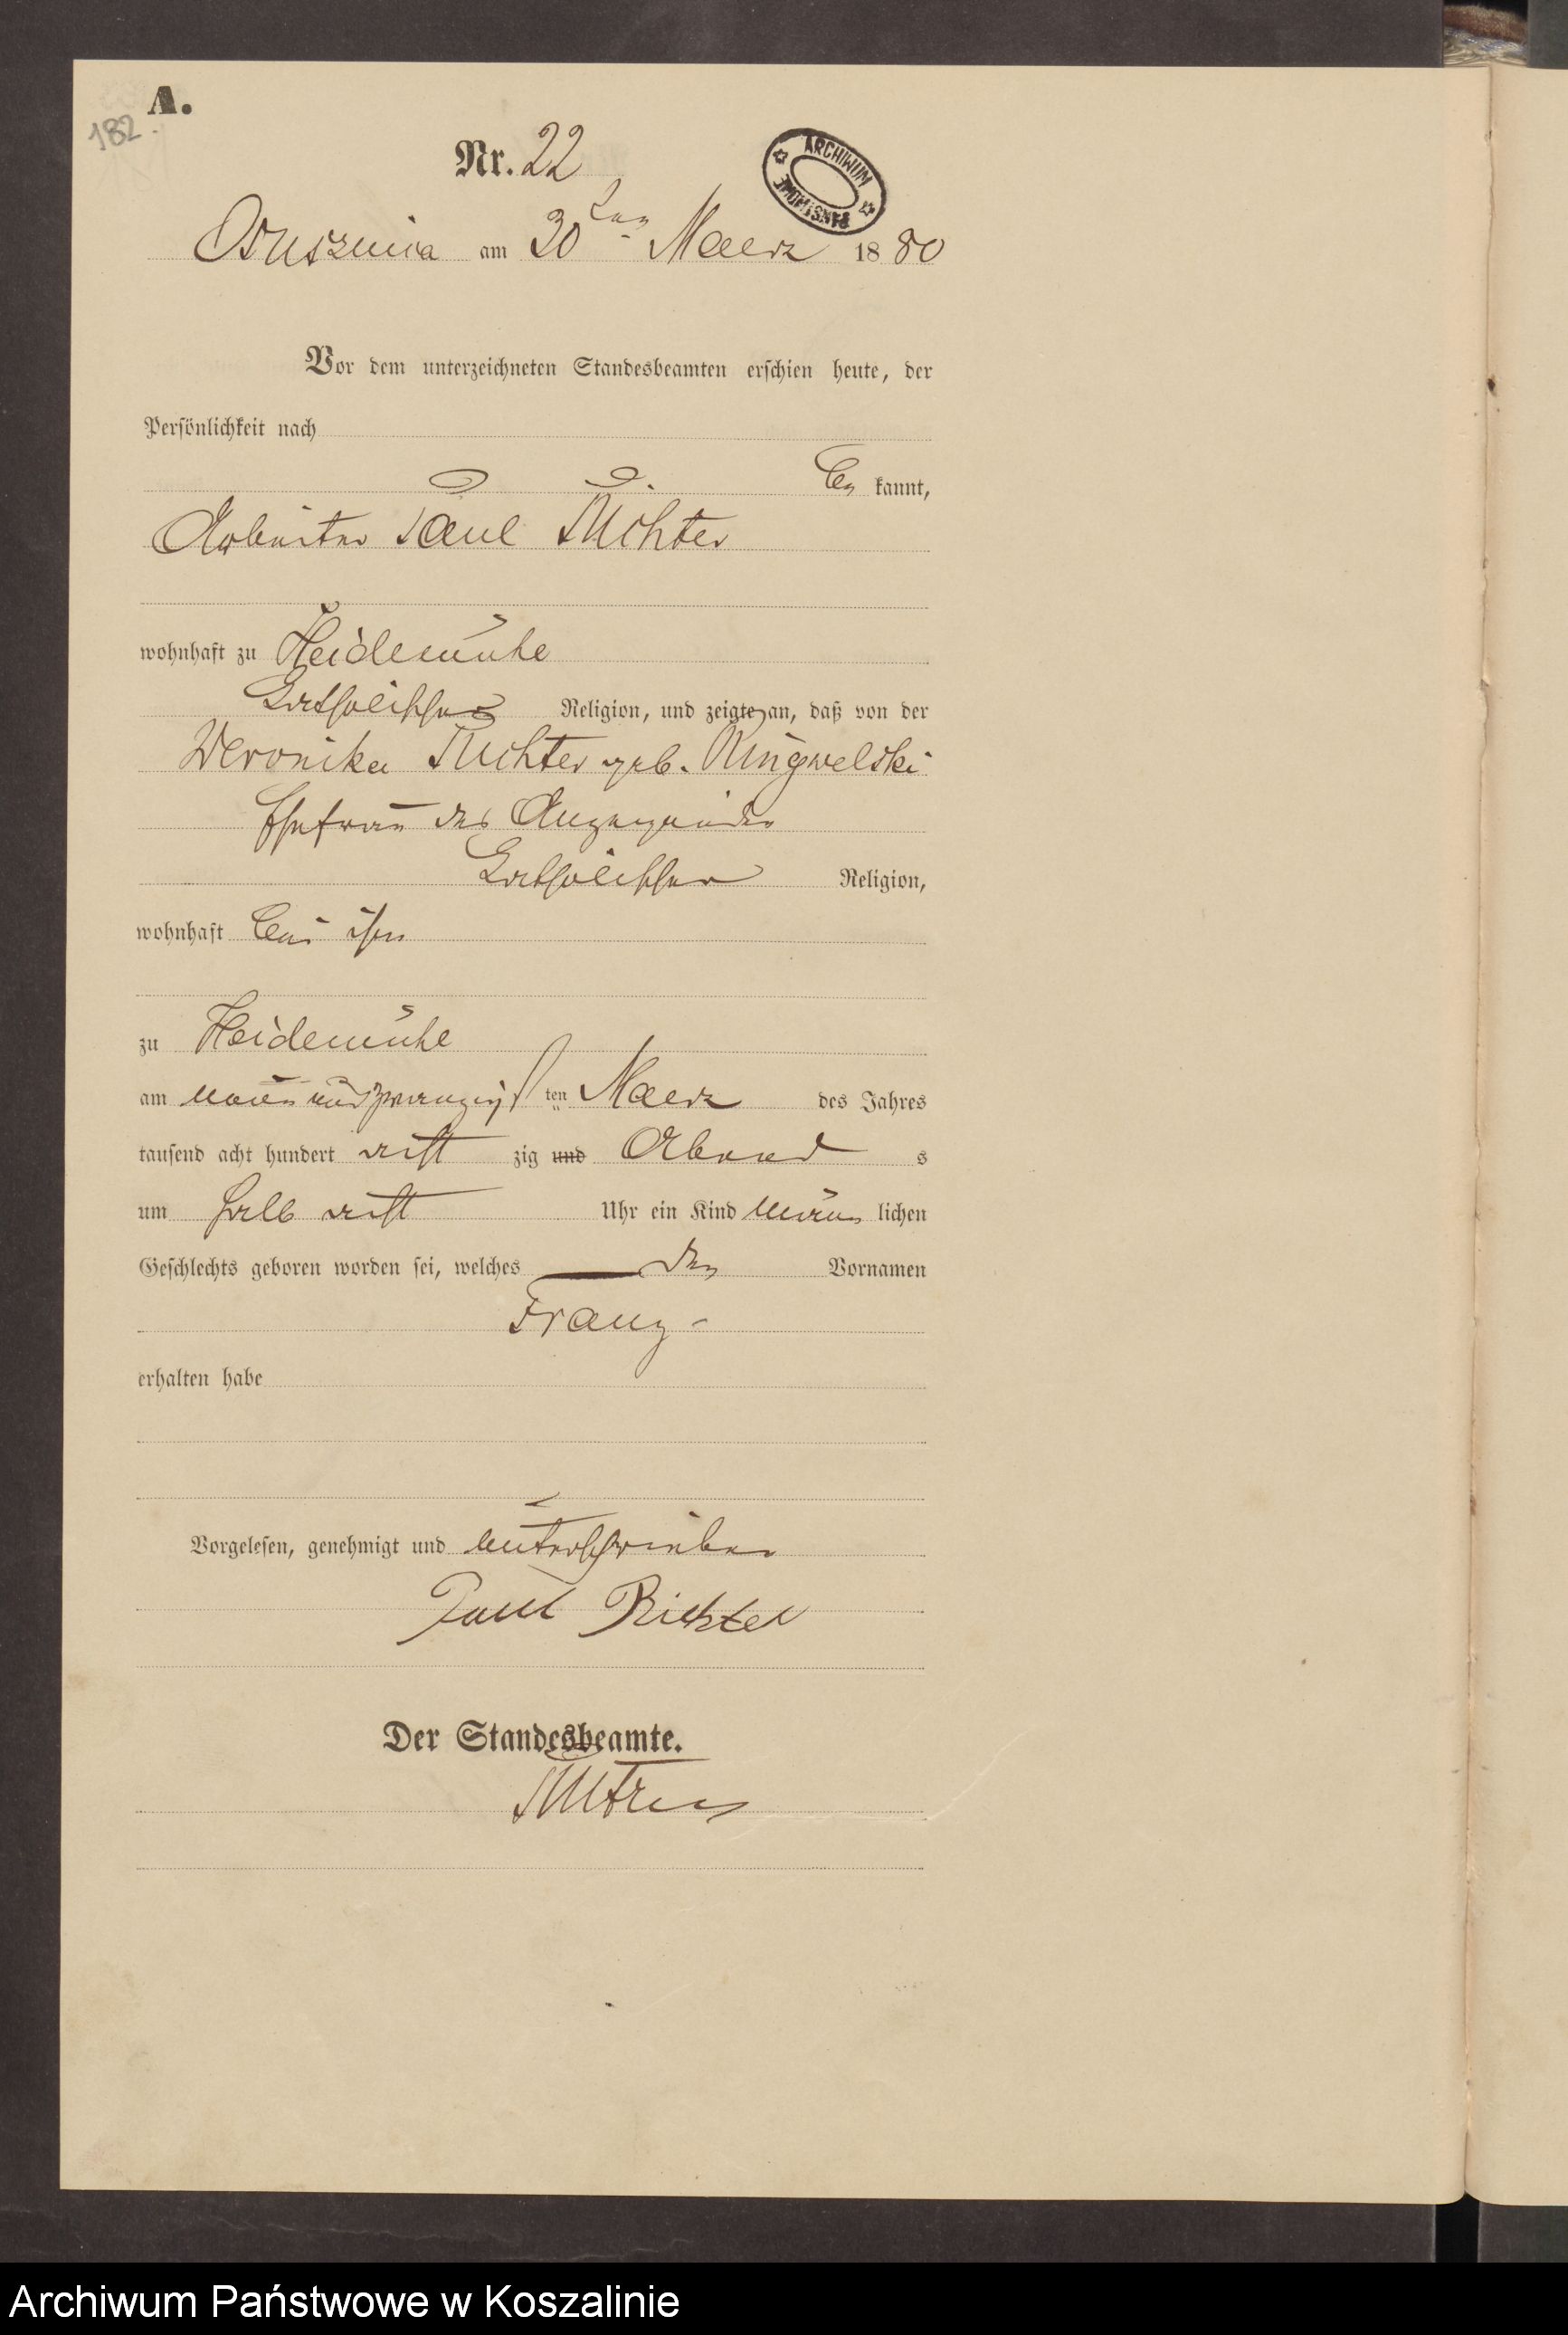 A.
182.
Nr. 22
ARCHIWUM PAŃSTWOWE
Ossusznica am 30ten Maerz 1880
Vor dem unterzeichneten Standesbeamten erschien heute, der
Persönlichkeit nach
be kannt,
Arbeiter Paul Richter
wohnhaft zu Heidemühle
katholischer Religion, und zeigte an, daß von der
Weronika Richter geb. Ringwelski
Ehefrau des Anzeigenden
katholischer Religion,
wohnhaft bei ihm
zu Heidemühle
am neun und zwanzigsten Maerz des Jahres
tausend acht hundert acht zig und Abend s
um halb acht Uhr ein Kind männ lichen
Geschlechts geboren worden sei, welches den Vornamen
Franz
erhalten habe
Vorgelesen, genehmigt und unterschrieben
Paul Richter
Der Standesbeamte.
Archiwum Państwowe w Koszalinie